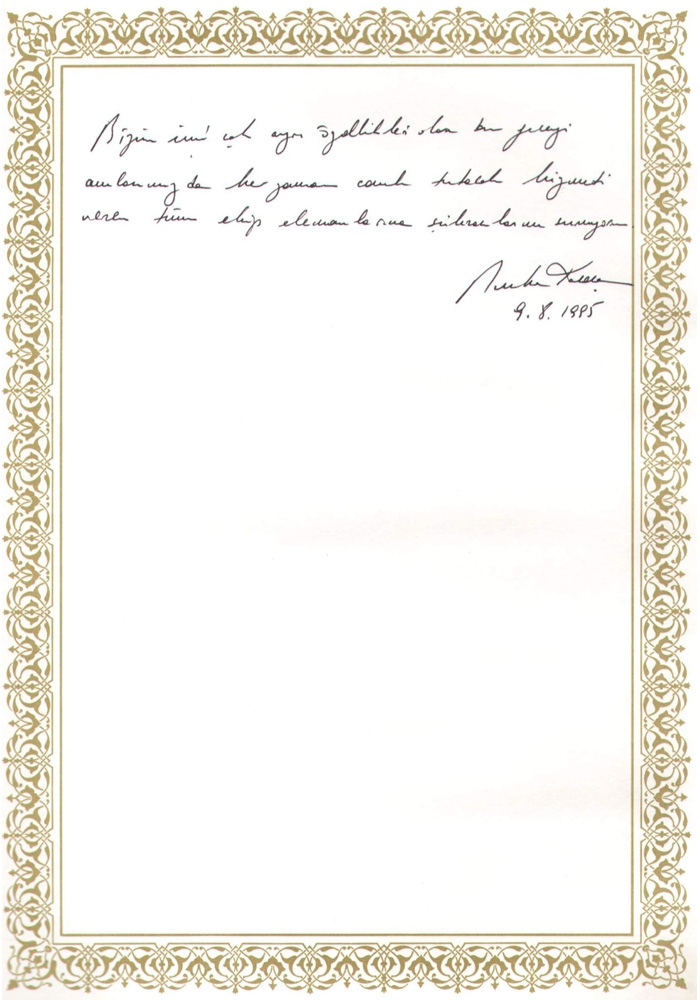 Bizim için çok ayrı özellikleri olan bu geceyi
anılarımızda her zaman canlı tutacak hizmeti
veren tüm ekip elemanlarına şükranlarımı sunuyorum.
9.8.1995